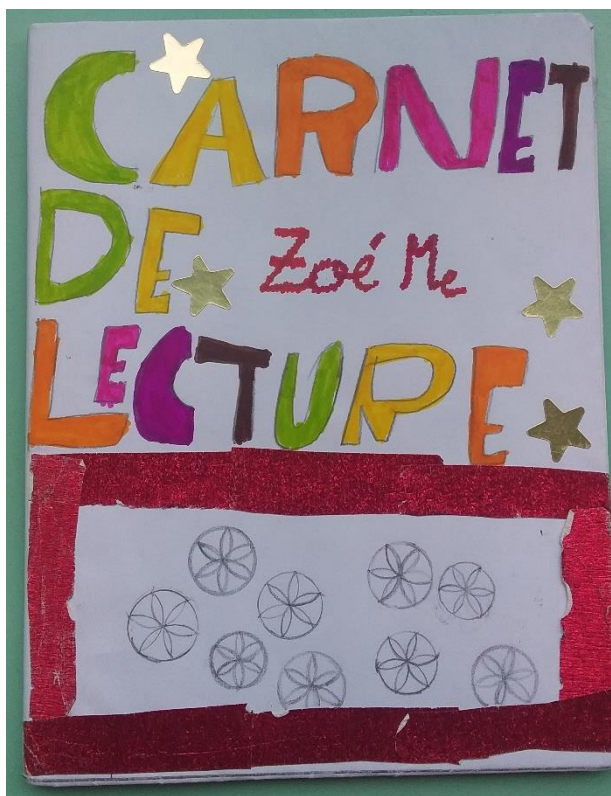 CARNET
DE Zoé Me
LECTURE